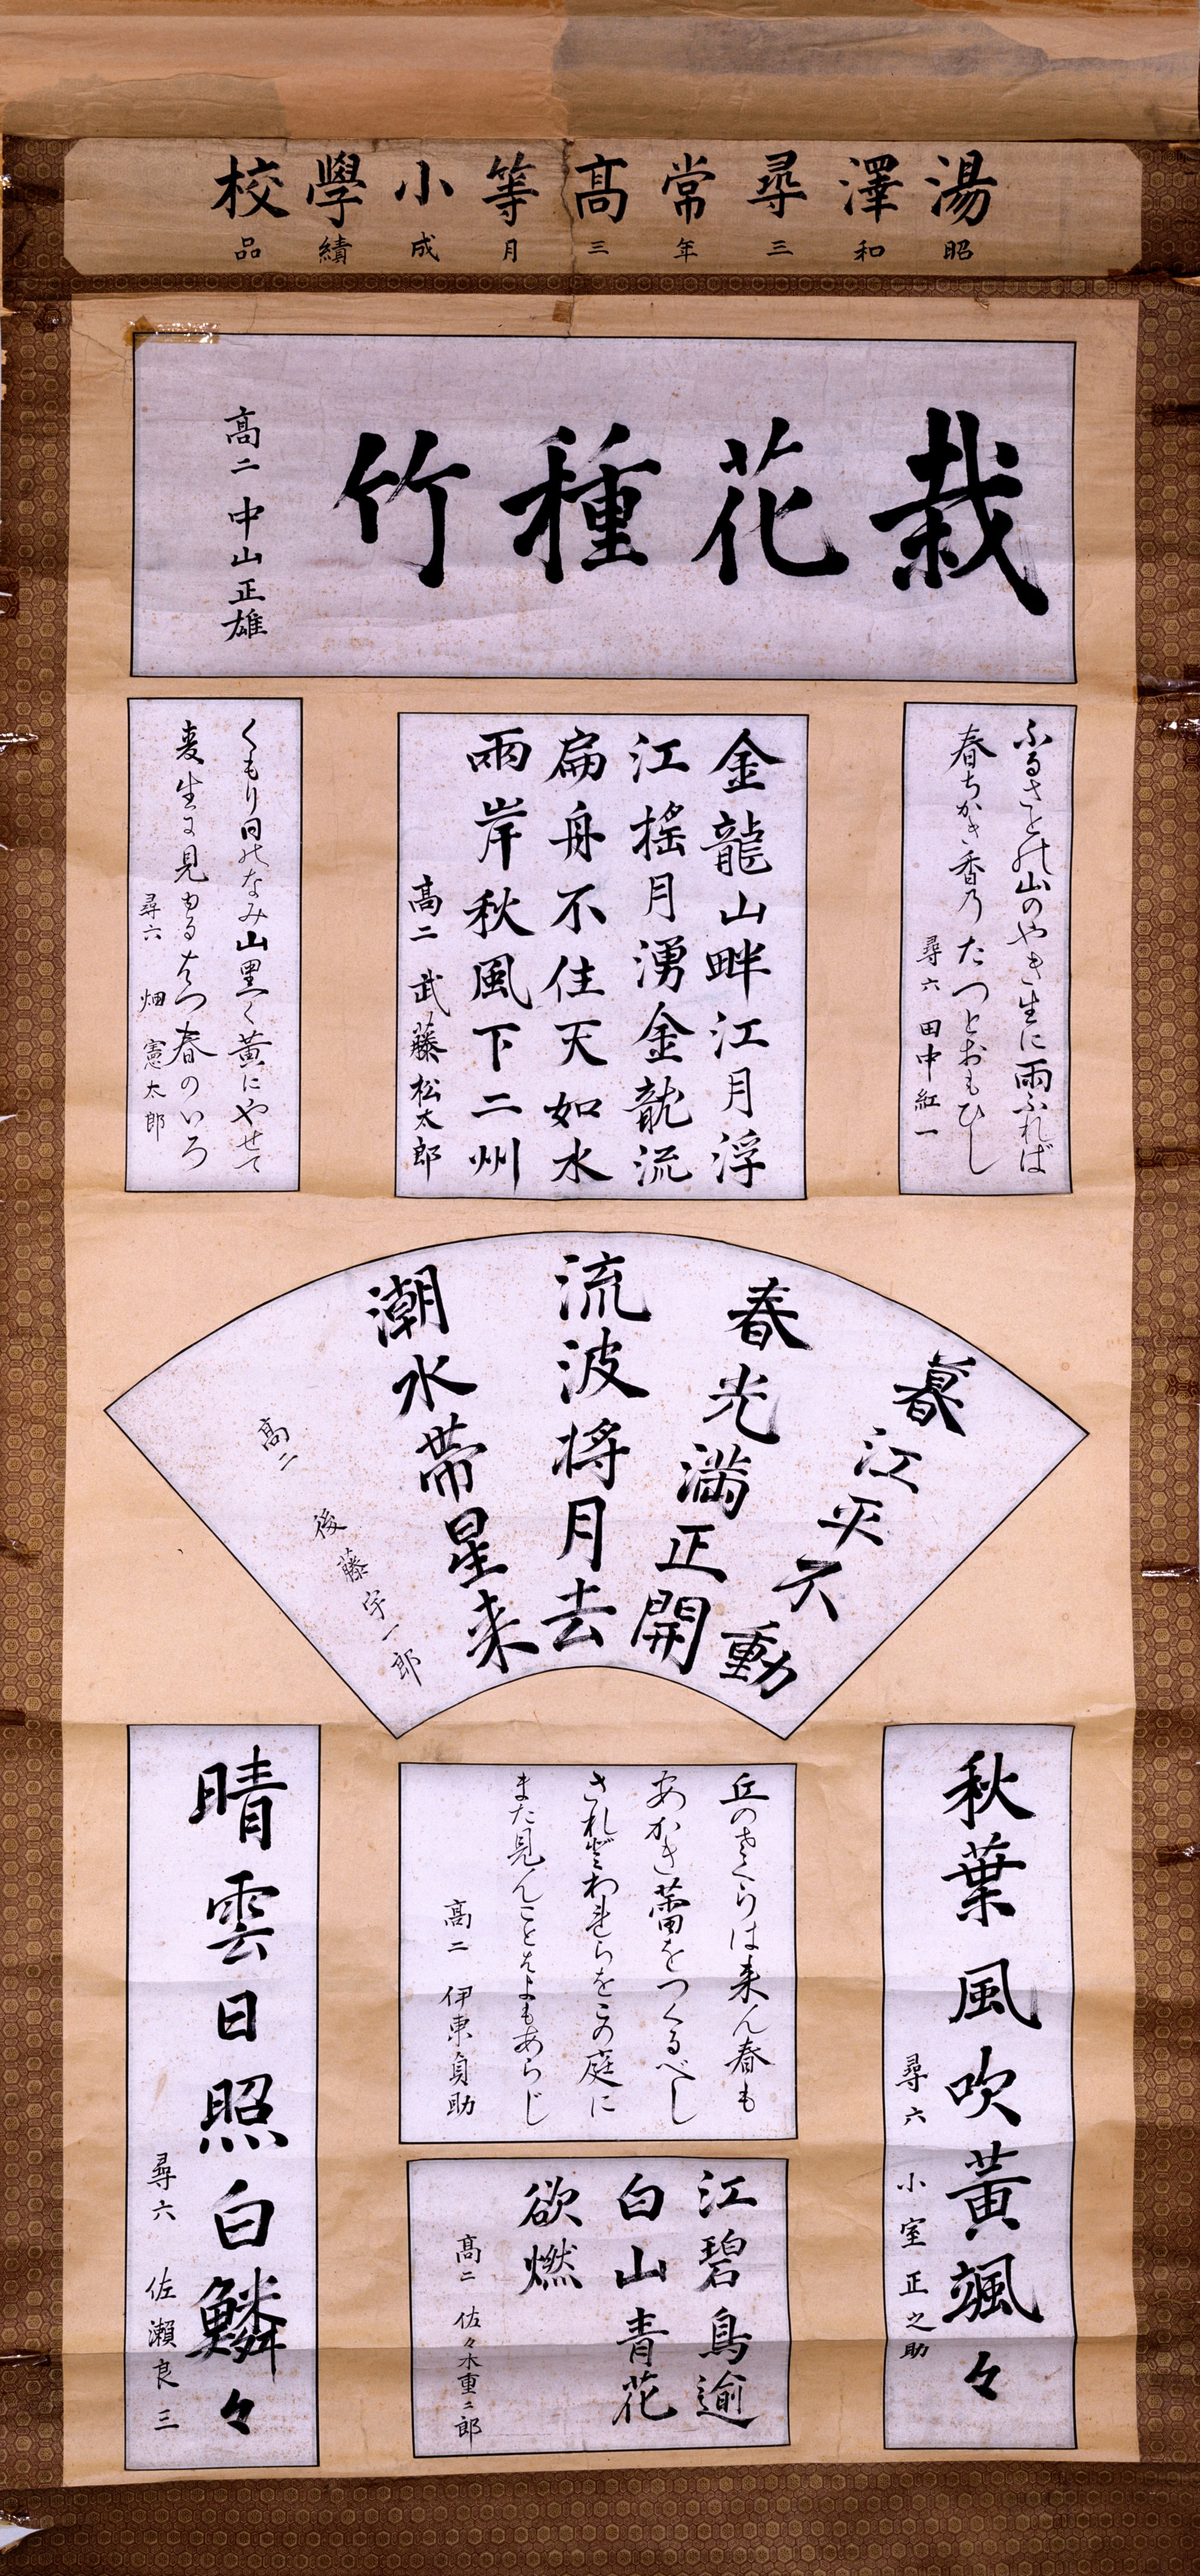 湯澤尋常高等小學校
昭和三年三月成績品
栽花種竹
高二 中山正雄
ふるさとの山のやき生に雨ふれば
春ちかき香乃たつとおもひし
尋六 田中紅一
金龍山畔江月浮
江揺月湧金龍流
扁舟不住天如水
兩岸秋風下二州
高二 武藤松太郎
くもり日のなみ山黒く黄にやせて
麦生に見ゆるはつ春のいろ
尋六 畑憲太郎
暮江平不動
春光満正開
流波将月去
潮水帯星来
高二 後藤宇一郎
秋葉風吹黃颯々
尋六 小室正之助
丘のさくらは来ん春も
あかき蕾をつくるべし
されどわれらをこの庭に
また見んことはよもあらじ
高二 伊東貞助
江碧鳥逾
白山青花
欲燃
高二 佐々木重二郎
晴雲日照白鱗々
尋六 佐瀬良三